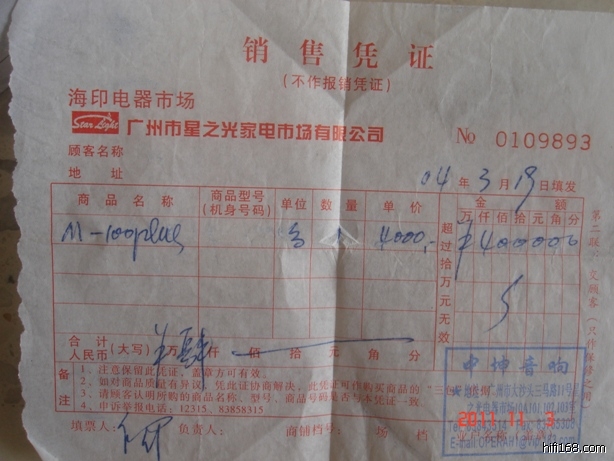 销售凭证
(不作报销凭证)
海印电器市场
Star Light 广州市星之光家电市场有限公司
No 0109893
顾客名称
地址
04年3月19日填发
商品名称 商品型号(机身号码) 单位 数量 单价 金额
万 仟 佰 拾 元 角 分
M-100plus 台 1 4000,- ¥400000
超过拾万元无效
第二联:交顾客(只作保修之用)
合计人民币(大写) 万 肆仟 佰 拾 元 角 分
备注
1、注意保留此凭证,盖章方可有效。
2、如对商品质量有异议,凭此证协商解决,此凭证可作购买商品的"三包"
3、请顾客认明所购的商品名称、型号、商品号码是否与本凭证一致
4、申诉举报电话:12315、83858315
中坤音响
广州市大沙头三马路11号
填票人: 负责人: 商创档号: 场 档
2011.11.3
hifi168.com